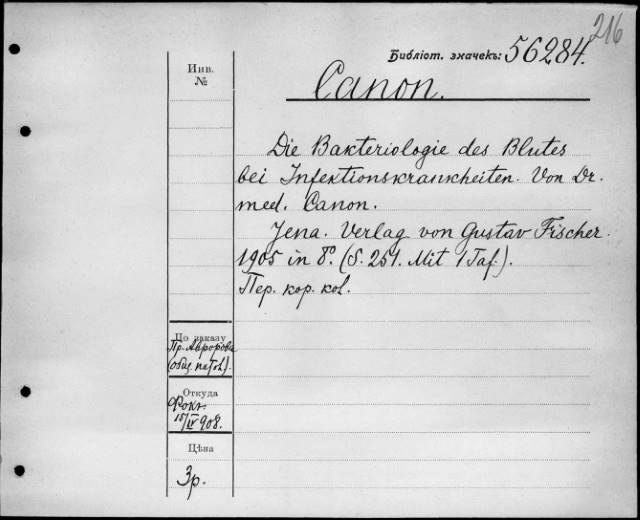 216
Библіот. значекъ: 56284.
Инв.
№
Canon.
Die Bakteriologie des Blutes
bei Infektionskrankheiten. Von Dr.
med. Canon.
Jena. Verlag von Gustav Fischer.
1905 in 8º. (S. 251. Mit 1 Taf.).
Пер. кор. kol.
По заказу
Пр. Авророва
(общ. патол.).
Откуда
15/IV 908.
Цѣна
3р.